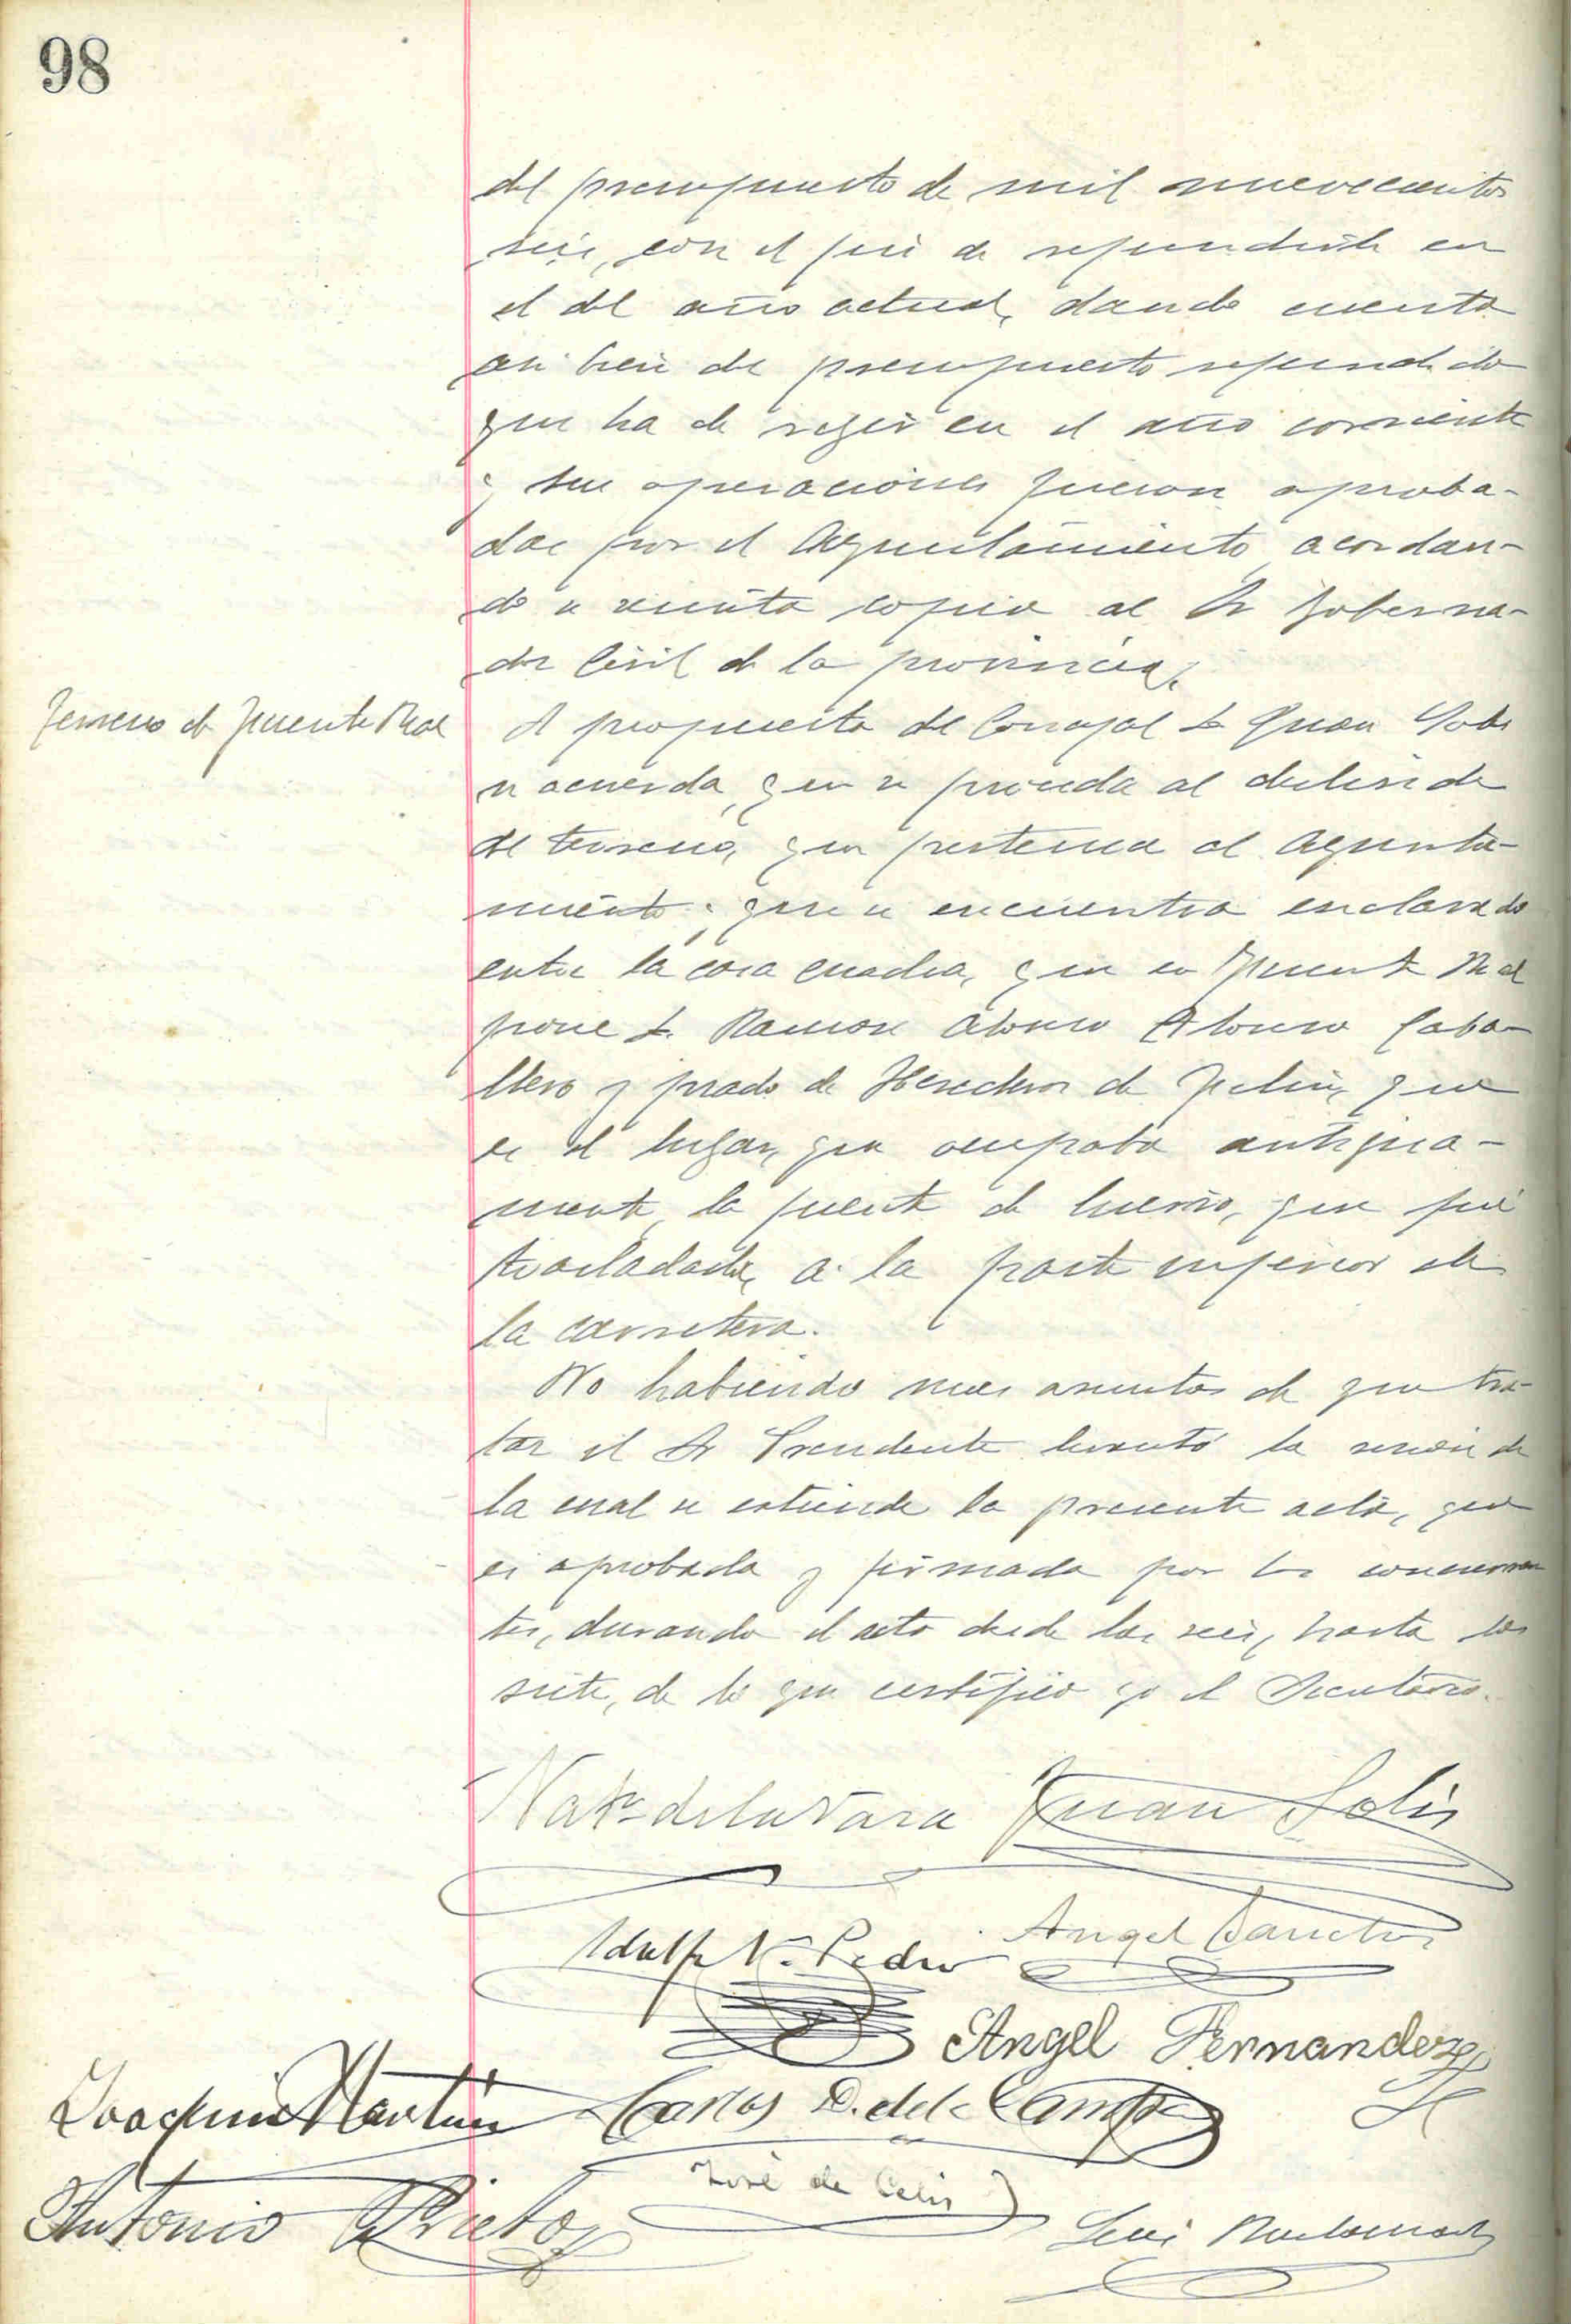 98
del presupuesto de mil nuevecientos
seis, con el fin de refundirle en
el del año actual, dando cuenta
asi bien del presupuesto refundido
que ha de regir en el año corriente
y sus operaciones fueron aproba-
das por el Ayuntamiento, acordan-
do se remita copia al Sr Goberna-
dor Civil de la provincia.
Terreno de Fuente Real
A propuesta del Concejal D. Juan Solis
se acuerda, que se proceda al deslinde
del terreno, que pertenece al Ayunta-
miento y que se encuentra enclavado
entre la casa cuadra, que en Fuente Real
pone D. Ramon Alonso Caba-
llero y prado de Herederos de que
es el lugar, que ocupaba antigua-
mente, la fuente de que fué
trasladada, a la parte inferior de
la carretera.
No habiendo mas asuntos de que tra-
tar el Sr Presidente levantó la sesion de
la cual se extiende la presente acta, que
es aprobada y firmada por los concurren
tes, durando el acto desde las seis, hasta las
siete, de lo que certifico yo el Secretario.
de la Vara Juan Solis
Adolfo Pedro Angel Sanchez
Angel Fernandez
Joaquin Martin Carlos D. de la Campa
José de Celis
Antonio Prieto
Luis